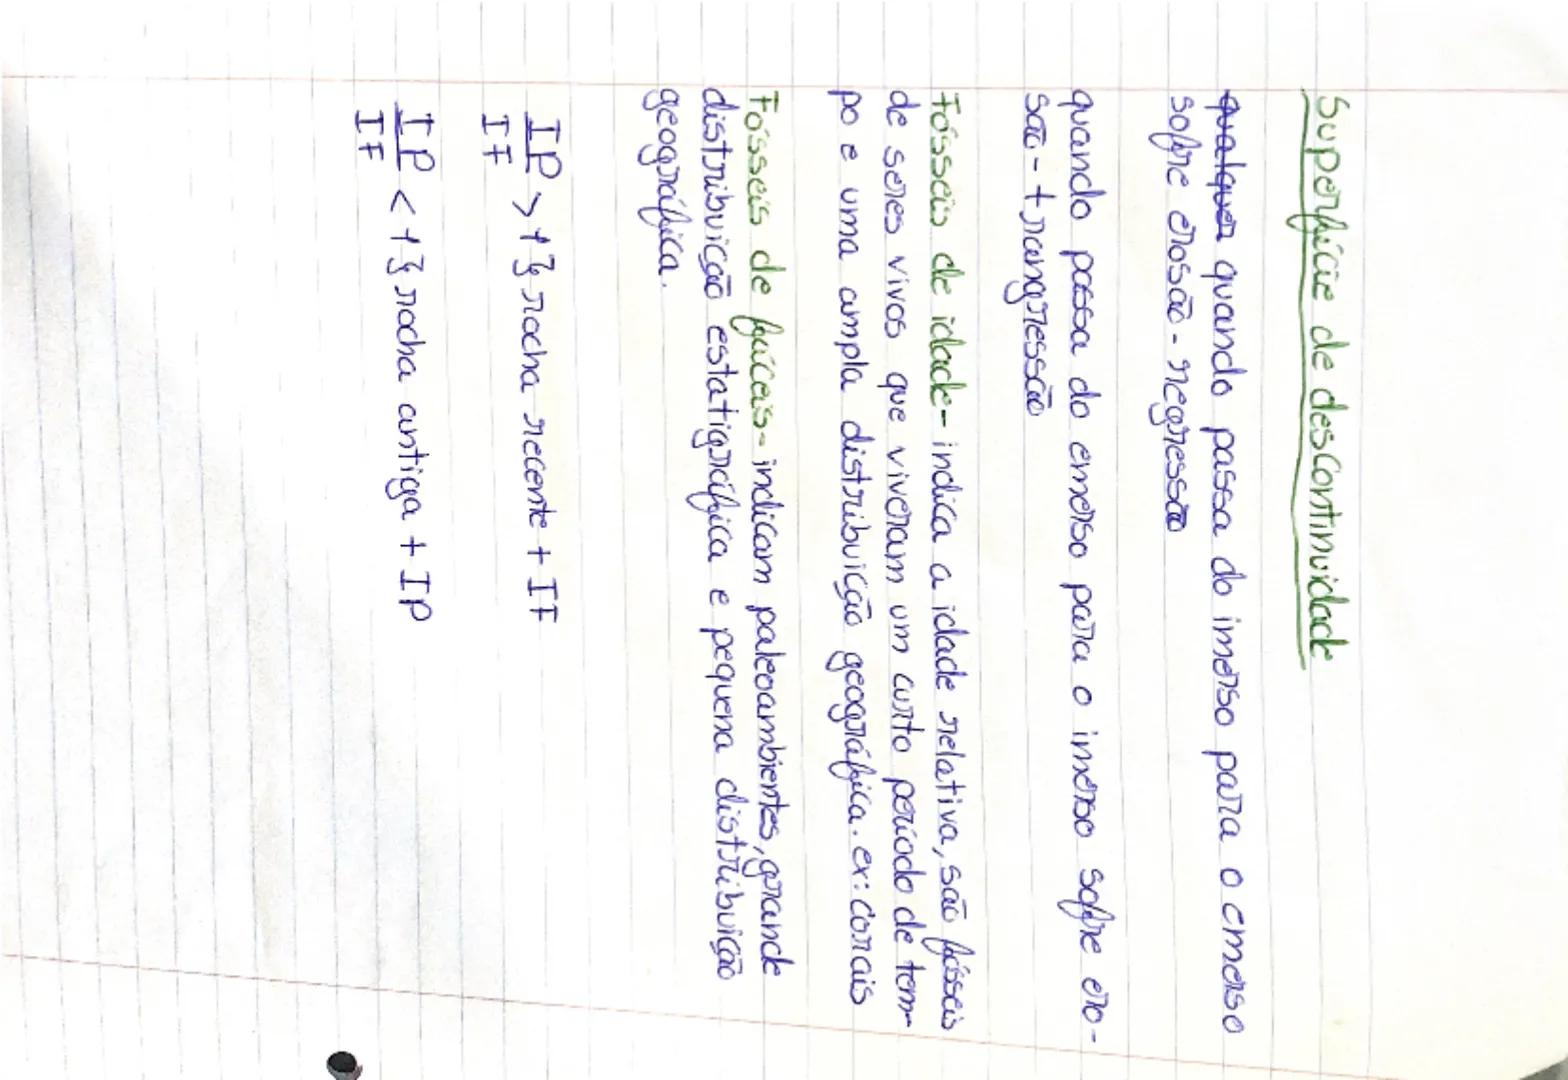 Superfície de descontinuidade
qualquer quando passa do imerso para o emerso
sofre erosão - regressão
quando passa do emerso para o imerso sofre ero-
são - trangressão
Fósseis de idade - indica a idade relativa, são fósseis
de seres vivos que viveram um curto período de tem-
po e uma ampla distribuição geográfica. ex: corais
Fósseis de fáceis - indicam paleoambientes, grande
distribuição estatigráfica e pequena distribuição
geográfica.
IP > 1 } rocha recente + IF
IF
IP < 1 } rocha antiga + IP
IF